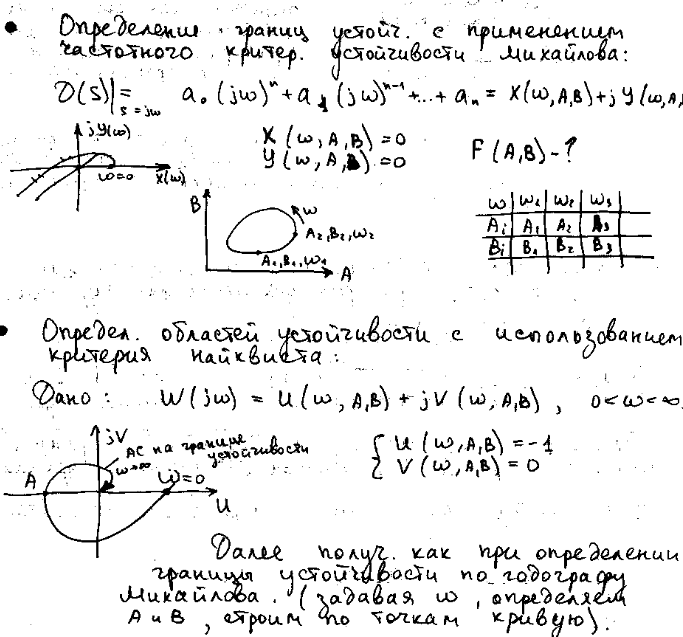 • Определение границ устойч. с применением
частотного критер. устойчивости Михайлова:
D(S)|s=jω = a₀(jω)ⁿ + a₁(jω)ⁿ⁻¹ + ... + aₙ = X(ω,A,B) + jY(ω,A,
jY(ω)
X(ω,A,B) = 0
Y(ω,A,B) = 0
F(A,B) - ?
ω=0 X(ω)
B
ω
A₂,B₂,ω₂
A₁,B₁,ω₁
A
ω | ω₁ | ω₂ | ω₃
Aᵢ | A₁ | A₂ | A₃
Bᵢ | B₁ | B₂ | B₃
• Определ. областей устойчивости с использованием
критерия Найквиста:
Дано: W(jω) = U(ω,A,B) + jV(ω,A,B), 0<ω<∞
jV
АС на границе
устойчивости
ω→∞
A
ω=0
U
{ U(ω,A,B) = -1
V(ω,A,B) = 0
Далее получ. как при определении
границы устойчивости по годографу
Михайлова. (задавая ω, определяем
А и В, строим по точкам кривую).